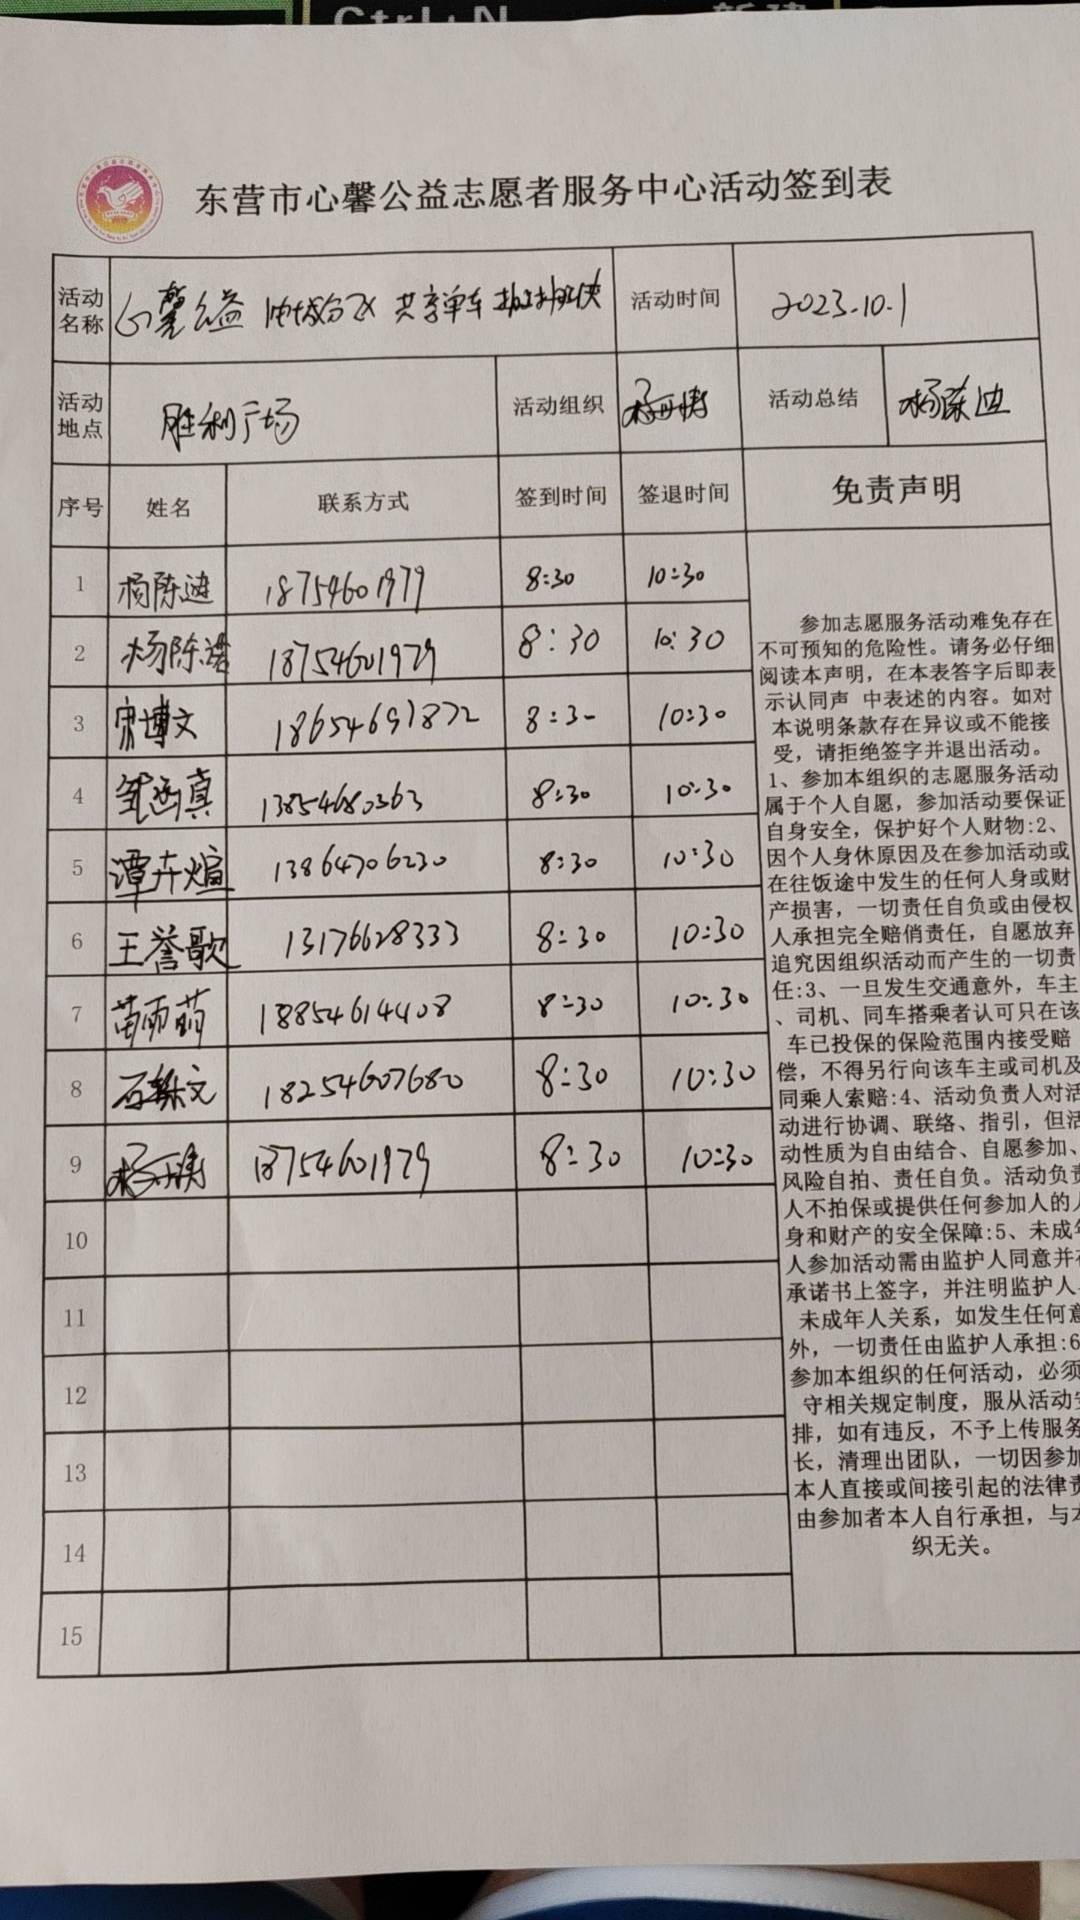 Ctrl+N 新建
东营市心馨公益志愿者服务中心活动签到表
活动名称 心馨公益 油城分队 共享单车 活动时间 2023.10.1
活动地点 胜利广场 活动组织 活动总结
序号 姓名 联系方式 签到时间 签退时间 免责声明
1 杨陈 18754601979 8:30 10:30
2 杨陈 18754601979 8:30 10:30
3 宋博文 18654691872 8:30 10:30
4 涵真 13854680363 8:30 10:30
5 谭卉煊 13864706230 8:30 10:30
6 王誉歌 13176628333 8:30 10:30
7 苗雨萌 18854614408 8:30 10:30
8 石 文 18254607680 8:30 10:30
9 杨 18754601979 8:30 10:30
10
11
12
13
14
15
参加志愿服务活动难免存在
不可预知的危险性。请务必仔细
阅读本声明，在本表签字后即表
示认同声 中表述的内容。如对
本说明条款存在异议或不能接
受，请拒绝签字并退出活动。
1、参加本组织的志愿服务活动
属于个人自愿，参加活动要保证
自身安全，保护好个人财物:2、
因个人身休原因及在参加活动或
在往饭途中发生的任何人身或财
产损害，一切责任自负或由侵权
人承担完全赔俏责任，自愿放弃
追究因组织活动而产生的一切责
任:3、一旦发生交通意外，车主
、司机、同车搭乘者认可只在该
车已投保的保险范围内接受赔
偿，不得另行向该车主或司机及
同乘人索赔:4、活动负责人对活
动进行协调、联络、指引，但活
动性质为自由结合、自愿参加、
风险自拍、责任自负。活动负责
人不拍保或提供任何参加人的人
身和财产的安全保障:5、未成年
人参加活动需由监护人同意并在
承诺书上签字，并注明监护人
未成年人关系，如发生任何意
外，一切责任由监护人承担:6
参加本组织的任何活动，必须
守相关规定制度，服从活动安
排，如有违反，不予上传服务
长，清理出团队，一切因参加
本人直接或间接引起的法律责
由参加者本人自行承担，与本
织无关。